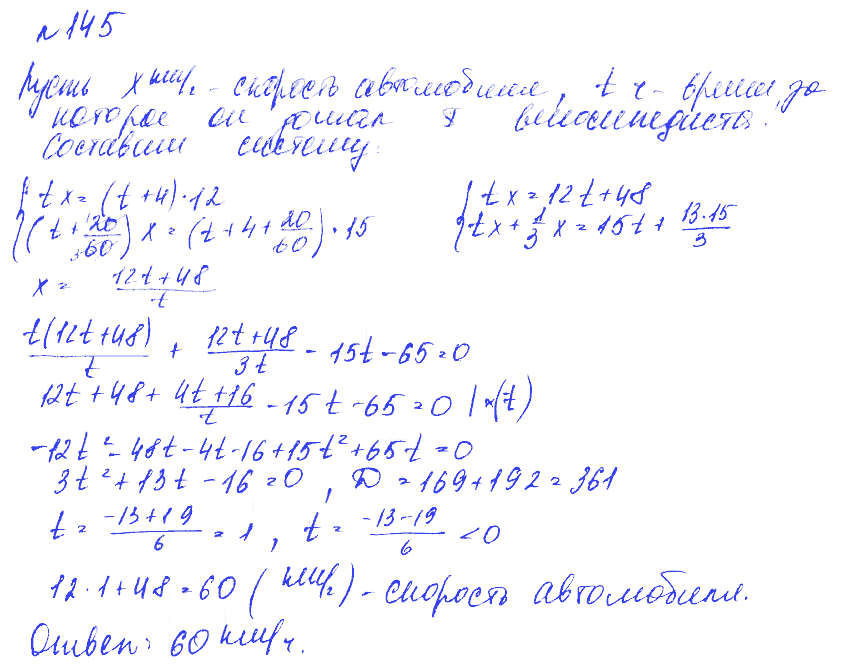 №145
Пусть x км/ч - скорость автомобиля, t ч - время, за
которое он догнал I велосипедиста.
Составим систему:
{ tx = (t+4)·12
{ (t + 20/60) x = (t + 4 + 20/60)·15
{ tx = 12t + 48
{ tx + 1/3 x = 15t + 13·15/3
x = (12t+48)/t
t(12t+48)/t + (12t+48)/3t - 15t - 65 = 0
12t + 48 + (4t+16)/t - 15t - 65 = 0 |×(-t)
-12t² - 48t - 4t - 16 + 15t² + 65t = 0
3t² + 13t - 16 = 0, D = 169 + 192 = 361
t = (-13+19)/6 = 1, t = (-13-19)/6 < 0
12·1+48 = 60 (км/ч) - скорость автомобиля.
Ответ: 60 км/ч.